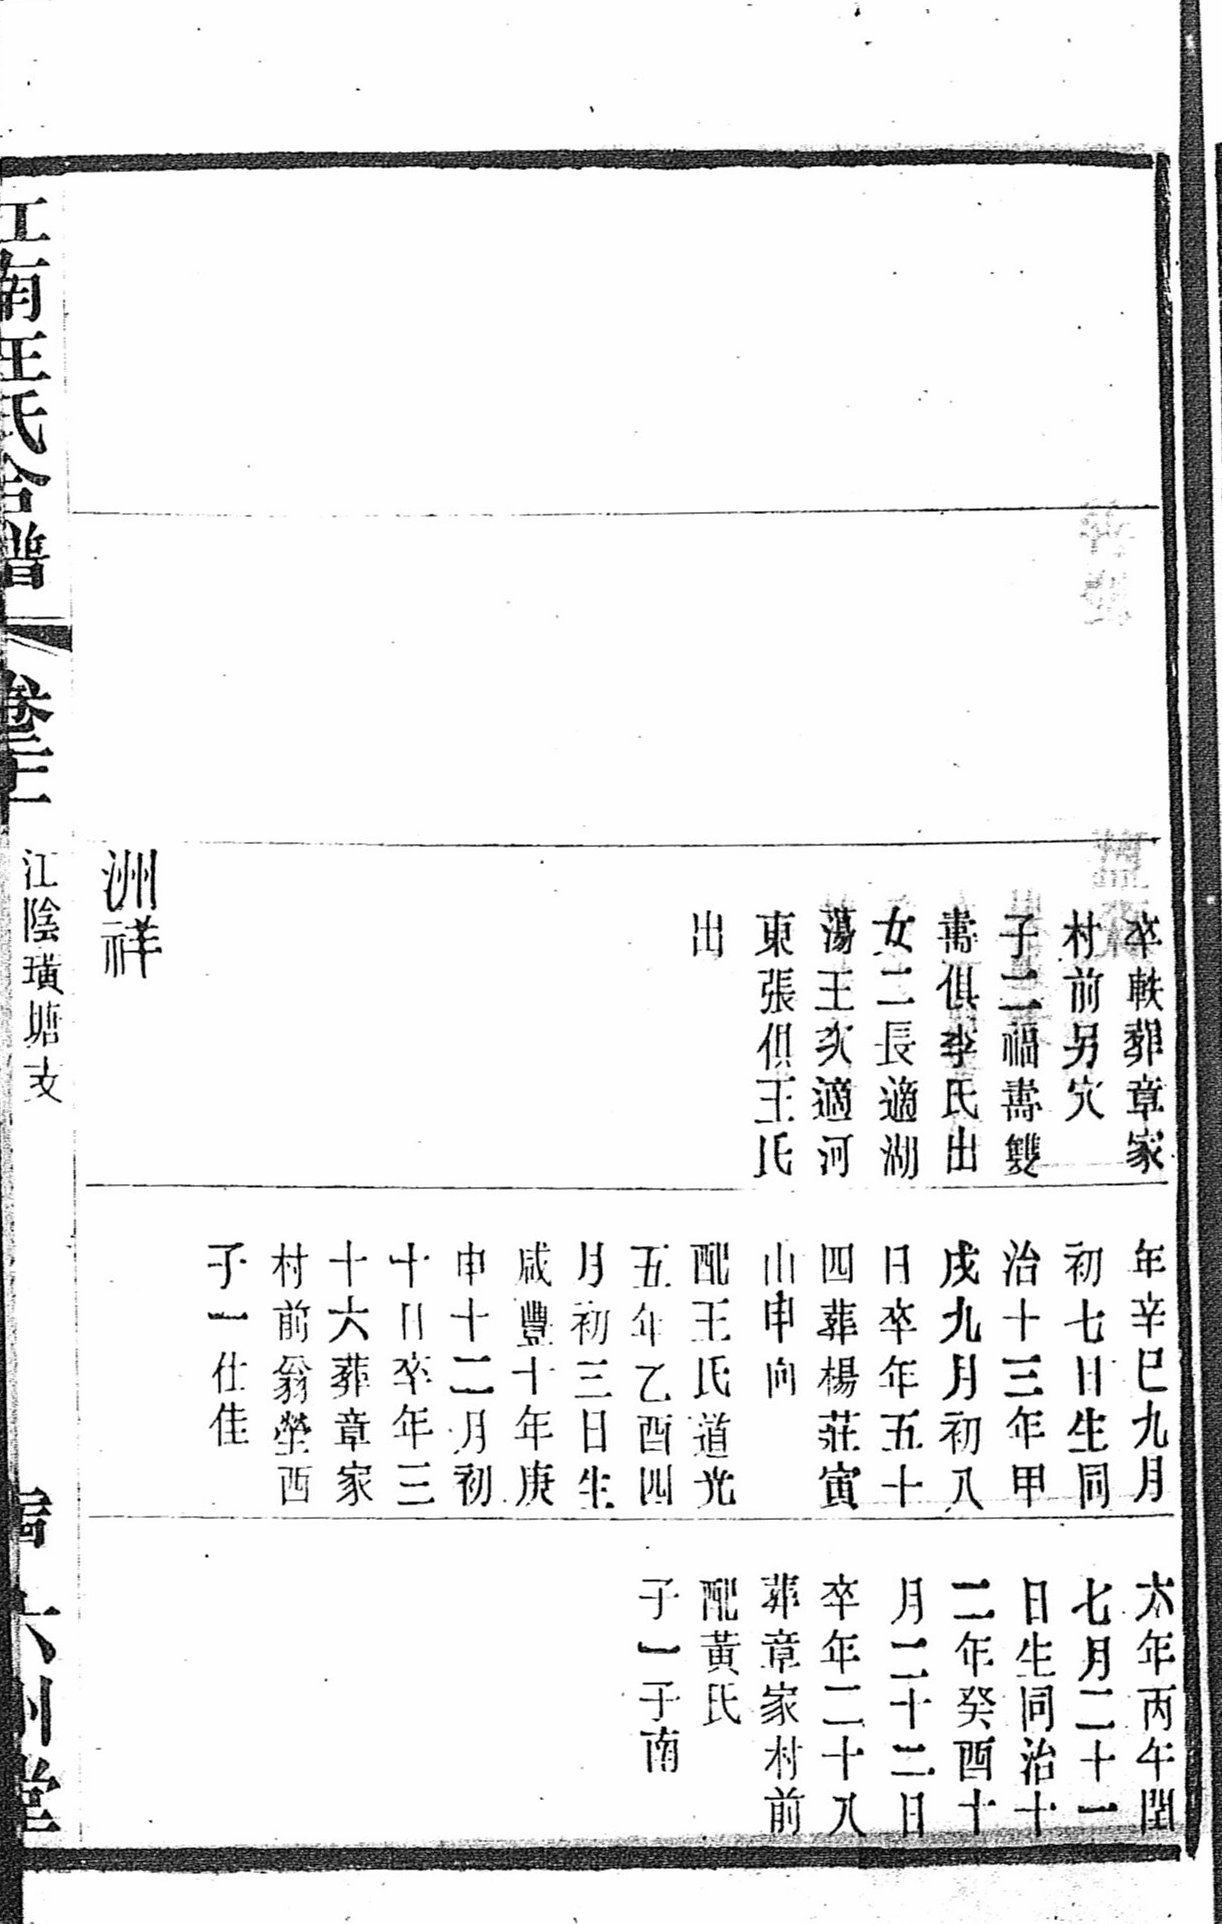 卒軼葬章家
村前另穴
子二福壽雙
壽俱李氏出
女二長適湖
蕩王次適河
東張俱王氏
出
洲祥
年辛巳九月
初七日生同
治十三年甲
戌九月初八
日卒年五十
四葬楊莊寅
山申向
配王氏道光
五年乙酉四
月初三日生
咸豐十年庚
申十二月初
十日卒年三
十六葬章家
村前翁塋西
子一仕佳
六年丙午閏
七月二十一
日生同治十
二年癸酉十
月二十二日
卒年二十八
葬章家村前
配黃氏
子一子南
江南王氏合譜
卷三十一
江陰璜塘支
六別堂